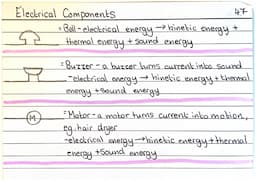 Electrical Components 47
• Bell - electrical energy → kinetic energy +
thermal energy + sound energy
• Buzzer - a buzzer turns current into sound
- electrical energy → kinetic energy + thermal
energy + sound energy
M
• Motor - a motor turns current into motion,
eg. hair dryer
- electrical energy → kinetic energy + thermal
energy + sound energy